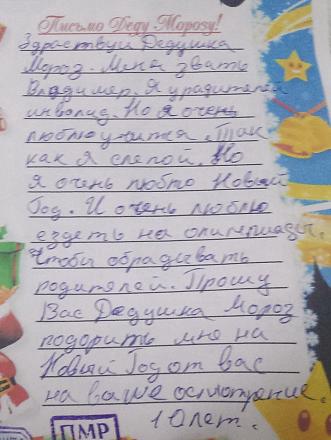 Письмо Деду Морозу!
Здраствуй Дедушка
Мороз. Меня звать
Владимер. Я урадителей
инволид. Но я очень
люблю учится. Так
как я слепой. Но
я очень люблю Новый
Год. И очень люблю
ездеть на олимпиады.
Чтобы обрадывать
родителей. Прошу
Вас Дедушка Мороз
подорить мне на
Новый Год от вас
на ваше осмотрение.
10 лет.
ПМР